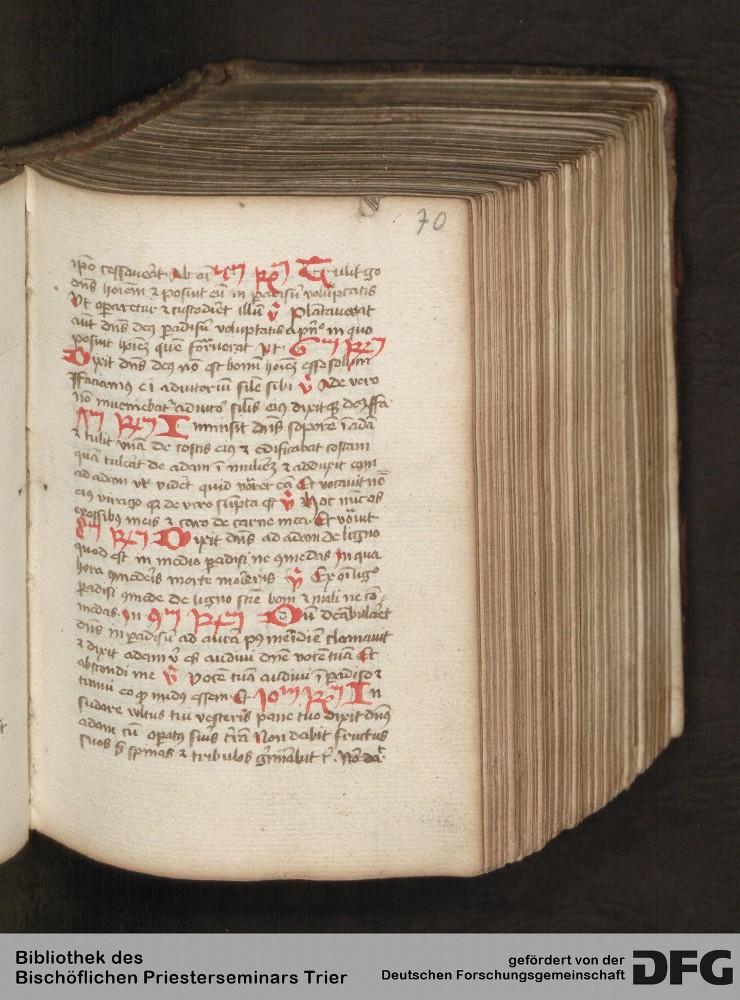 70
ipo cessaverat Ab oi Rm Tulit go
dns hoiem & posuit eu in padisu voluptatis
Vt opararetur & custodiret illu v Plataverat
aut dns deus padisu voluptatis a pn in quo
posuit hoiem quem formaverat Vt 6m Rm
Dixit dns deus no est bonu hoiem esse solum
ffaciamus ei adiutoriu sile sibi v Ade vero
no inveniebat adiuto silis eius dixitque deus ffa
Rm Inmisit dns sopore i ada
& tulit una de costis eius & edificabat costam
qua tulerat de adam i muliere & adduxit eam
ad adam ut videret quid voraret ea Et vocavit no
eius virago q de viro supta est v Hoc nuc os
exossibus meis & caro de carne mea Et vocavit
Rm Dixit dns ad adam de ligno
quod est in medio padisi ne comedas In qua
hora comederis morte morieris v Ex oi lig
padisi comede de ligno scie boni & mali ne co
medas In 9m Rm Du deabularet
dns in padisu ad aura post meridiem clamavit
& dixit adam v es audivi dne voce tua Et
abscondi me v Voce tua audivi i padiso &
timui eo q nudus essem Et 10m Rm In
sudore vultus tui vesceris pane tuo dixit dns
adam cu opatus fuis tra Non dabit fructus
suos s spinas & tribulos gminabit t v No da
Bibliothek des
Bischöflichen Priesterseminars Trier
gefördert von der
Deutschen Forschungsgemeinschaft
DFG